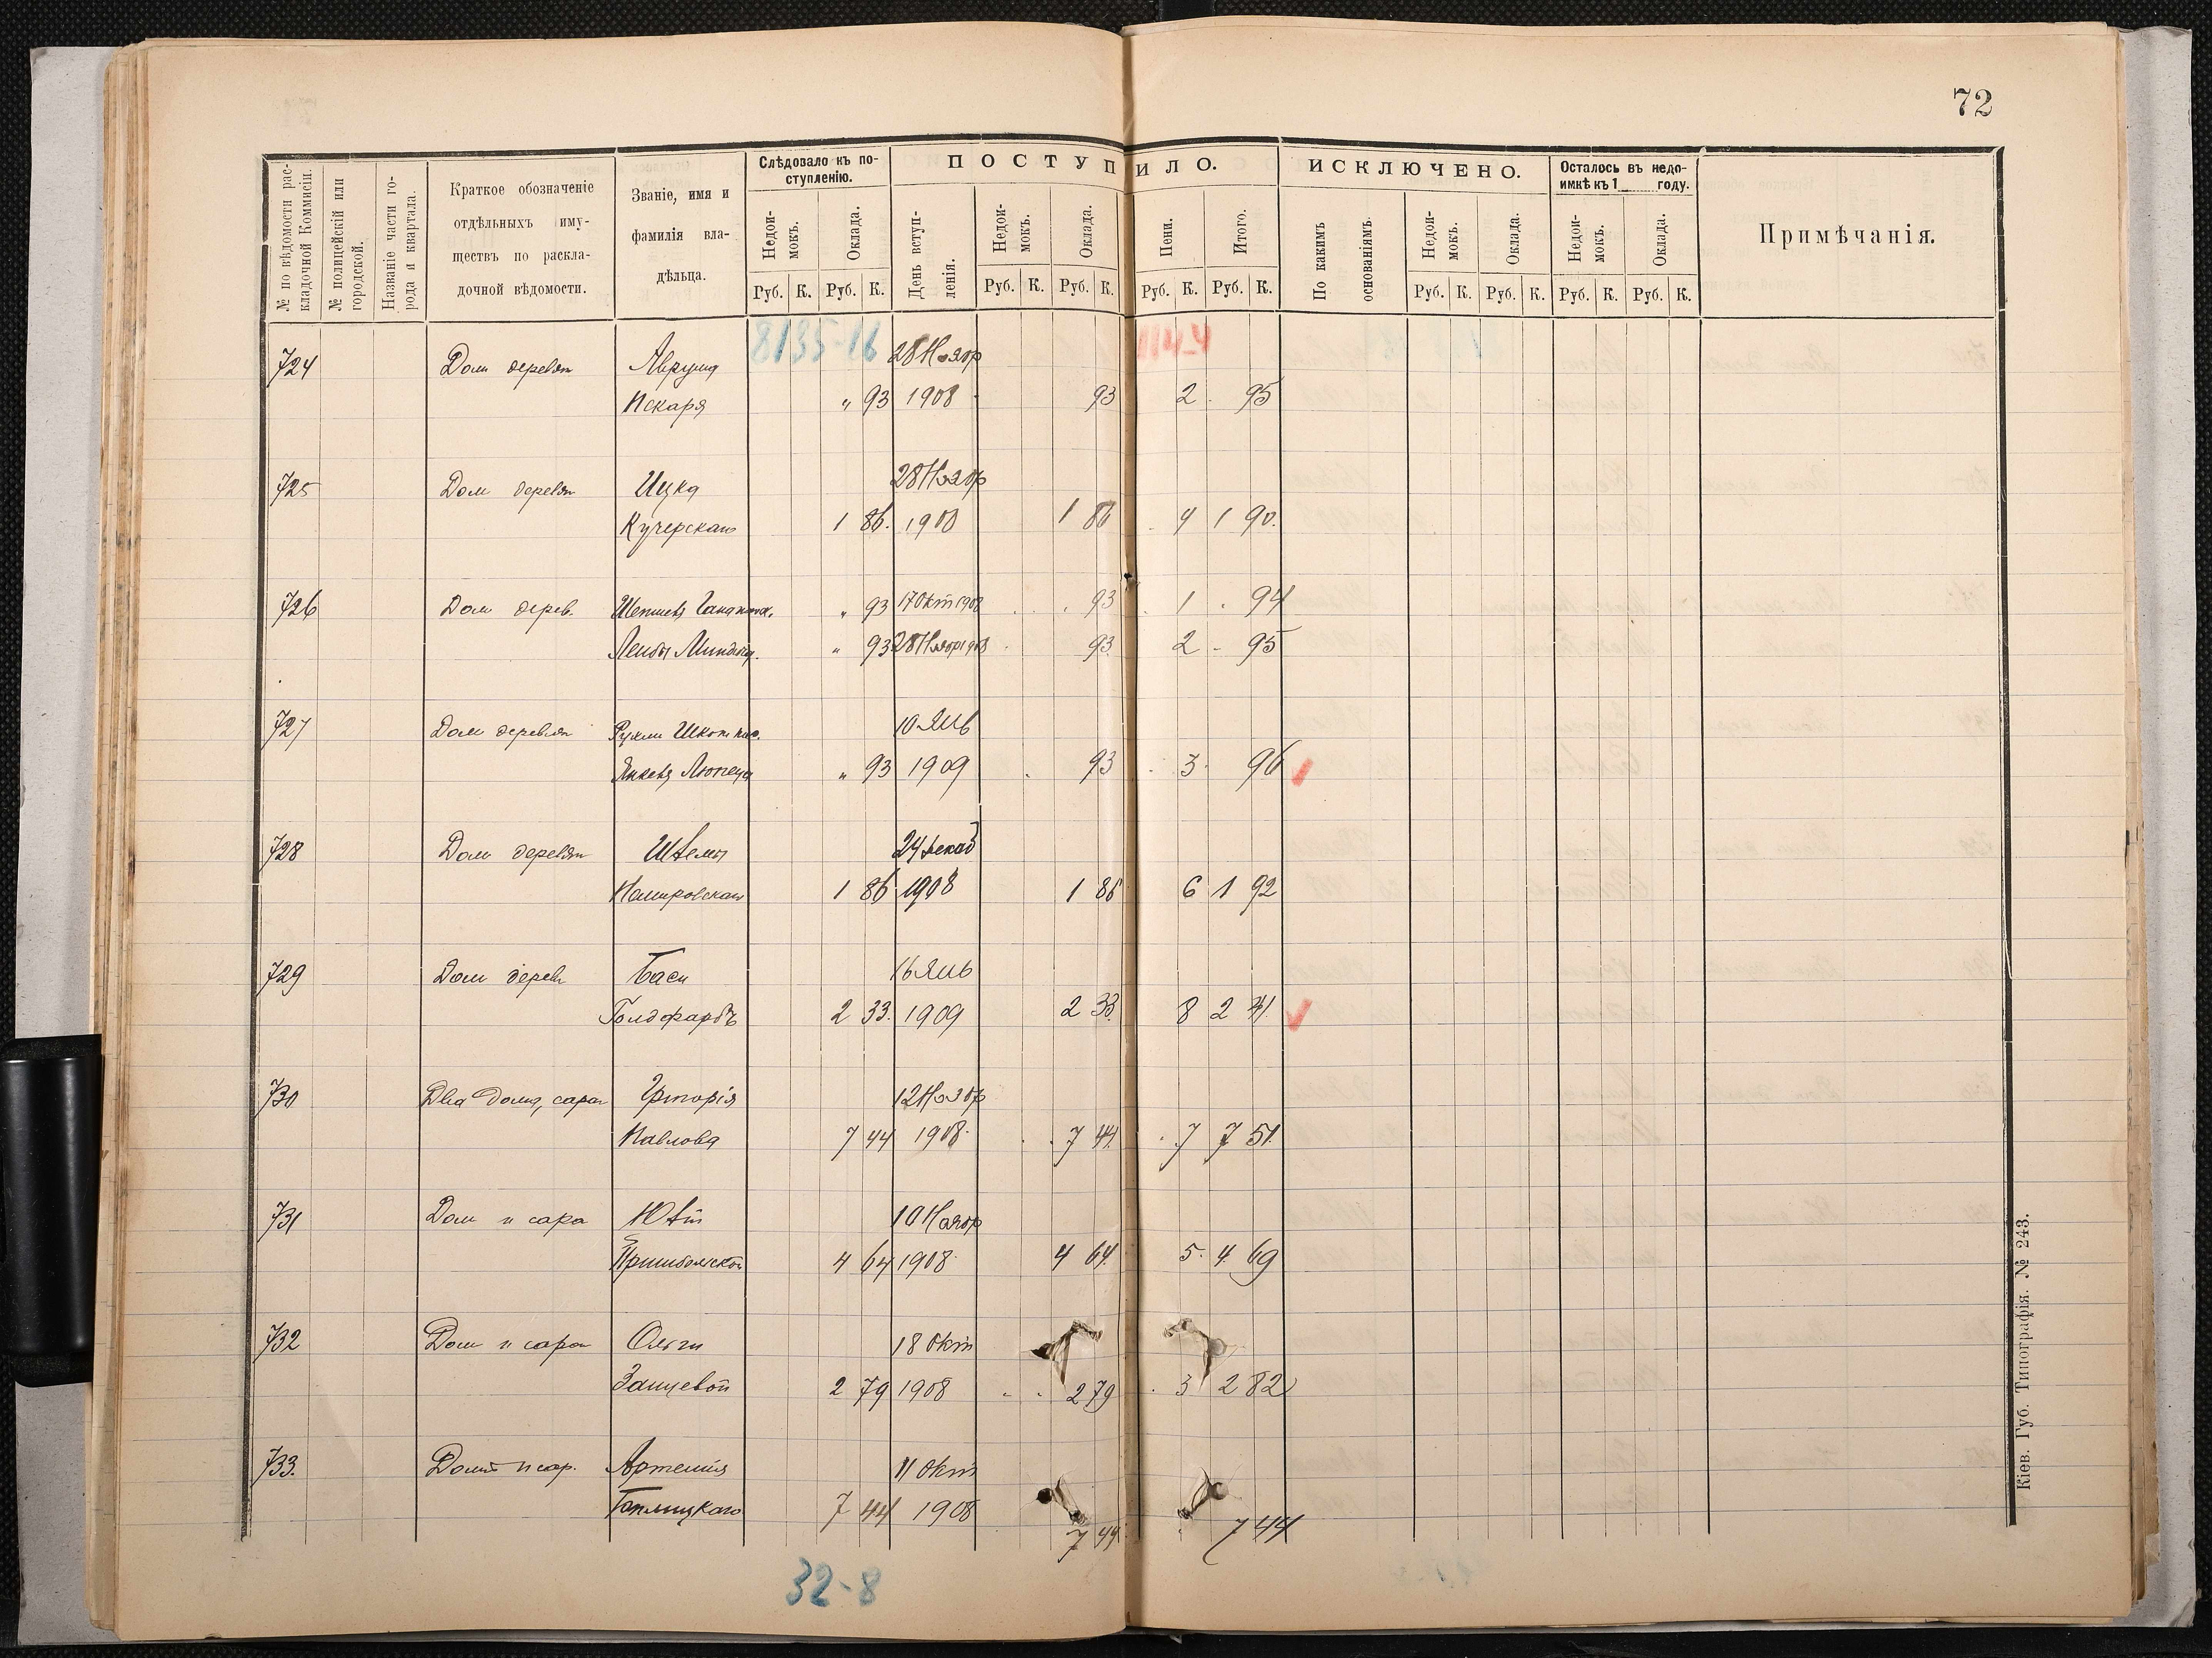 72
№ по вѣдомости рас-
кладочной Коммисіи.
№ полицейскій или
городской.
Названіе части го-
рода и квартала.
Краткое обозначеніе
отдѣльныхъ иму-
ществъ по раскла-
дочной вѣдомости.
Званіе, имя и
фамилія вла-
дѣльца.
Слѣдовало къ по-
ступленію.
Недои-
мокъ.
Оклада.
Руб. К. Руб. К.
ПОСТУПИЛО.
День вступ-
ленія.
Недои-
мокъ.
Оклада.
Пени.
Итого.
Руб. К. Руб. К. Руб. К. Руб. К.
ИСКЛЮЧЕНО.
По какимъ
основаніямъ.
Недои-
мокъ.
Оклада.
Руб. К. Руб. К.
Осталось въ недо-
имкѣ къ 1 году.
Недои-
мокъ.
Оклада.
Руб. К. Руб. К.
Примѣчанія.
8135-16
724 Дом деревян Аврума 28 Ноябр
Искаря " 93 1908 93 2 95
725 Дом деревян Ицка 28 Ноябр
Кучерскаго 1 86. 1908 1 86 4 1 90.
726 Дом дерев. " 93 17 Окт 1908 93 1 94
Лейбы " 93 28 Ноябр 1908 93 2 95
727 Дом деревян Рухли 10 Янв
Янкеля " 93 1909 93 3 96
728 Дом деревян 24 Декаб
1 86 1908 1 86 6 1 92
729 Дом дерев Баси 16 Янв
Голдфарбъ 2 33. 1909 2 33. 8 2 41.
730 Два дома, сараи Григорія 12 Ноябр
Павлова 7 44 1908. 7 44. 7 7 51.
731 Дом и сара 10 Ноябр
4 64 1908. 4 64. 5. 4 69
732 Дом и сараи Ольги 18 Окт
Зайцевой 2 79 1908 2 79 3 2 82
733. Дом и сар. Артемія 11 Окт
7 44 1908 7 44 7 44
32-8
Кіев. Губ. Типографія. № 243.